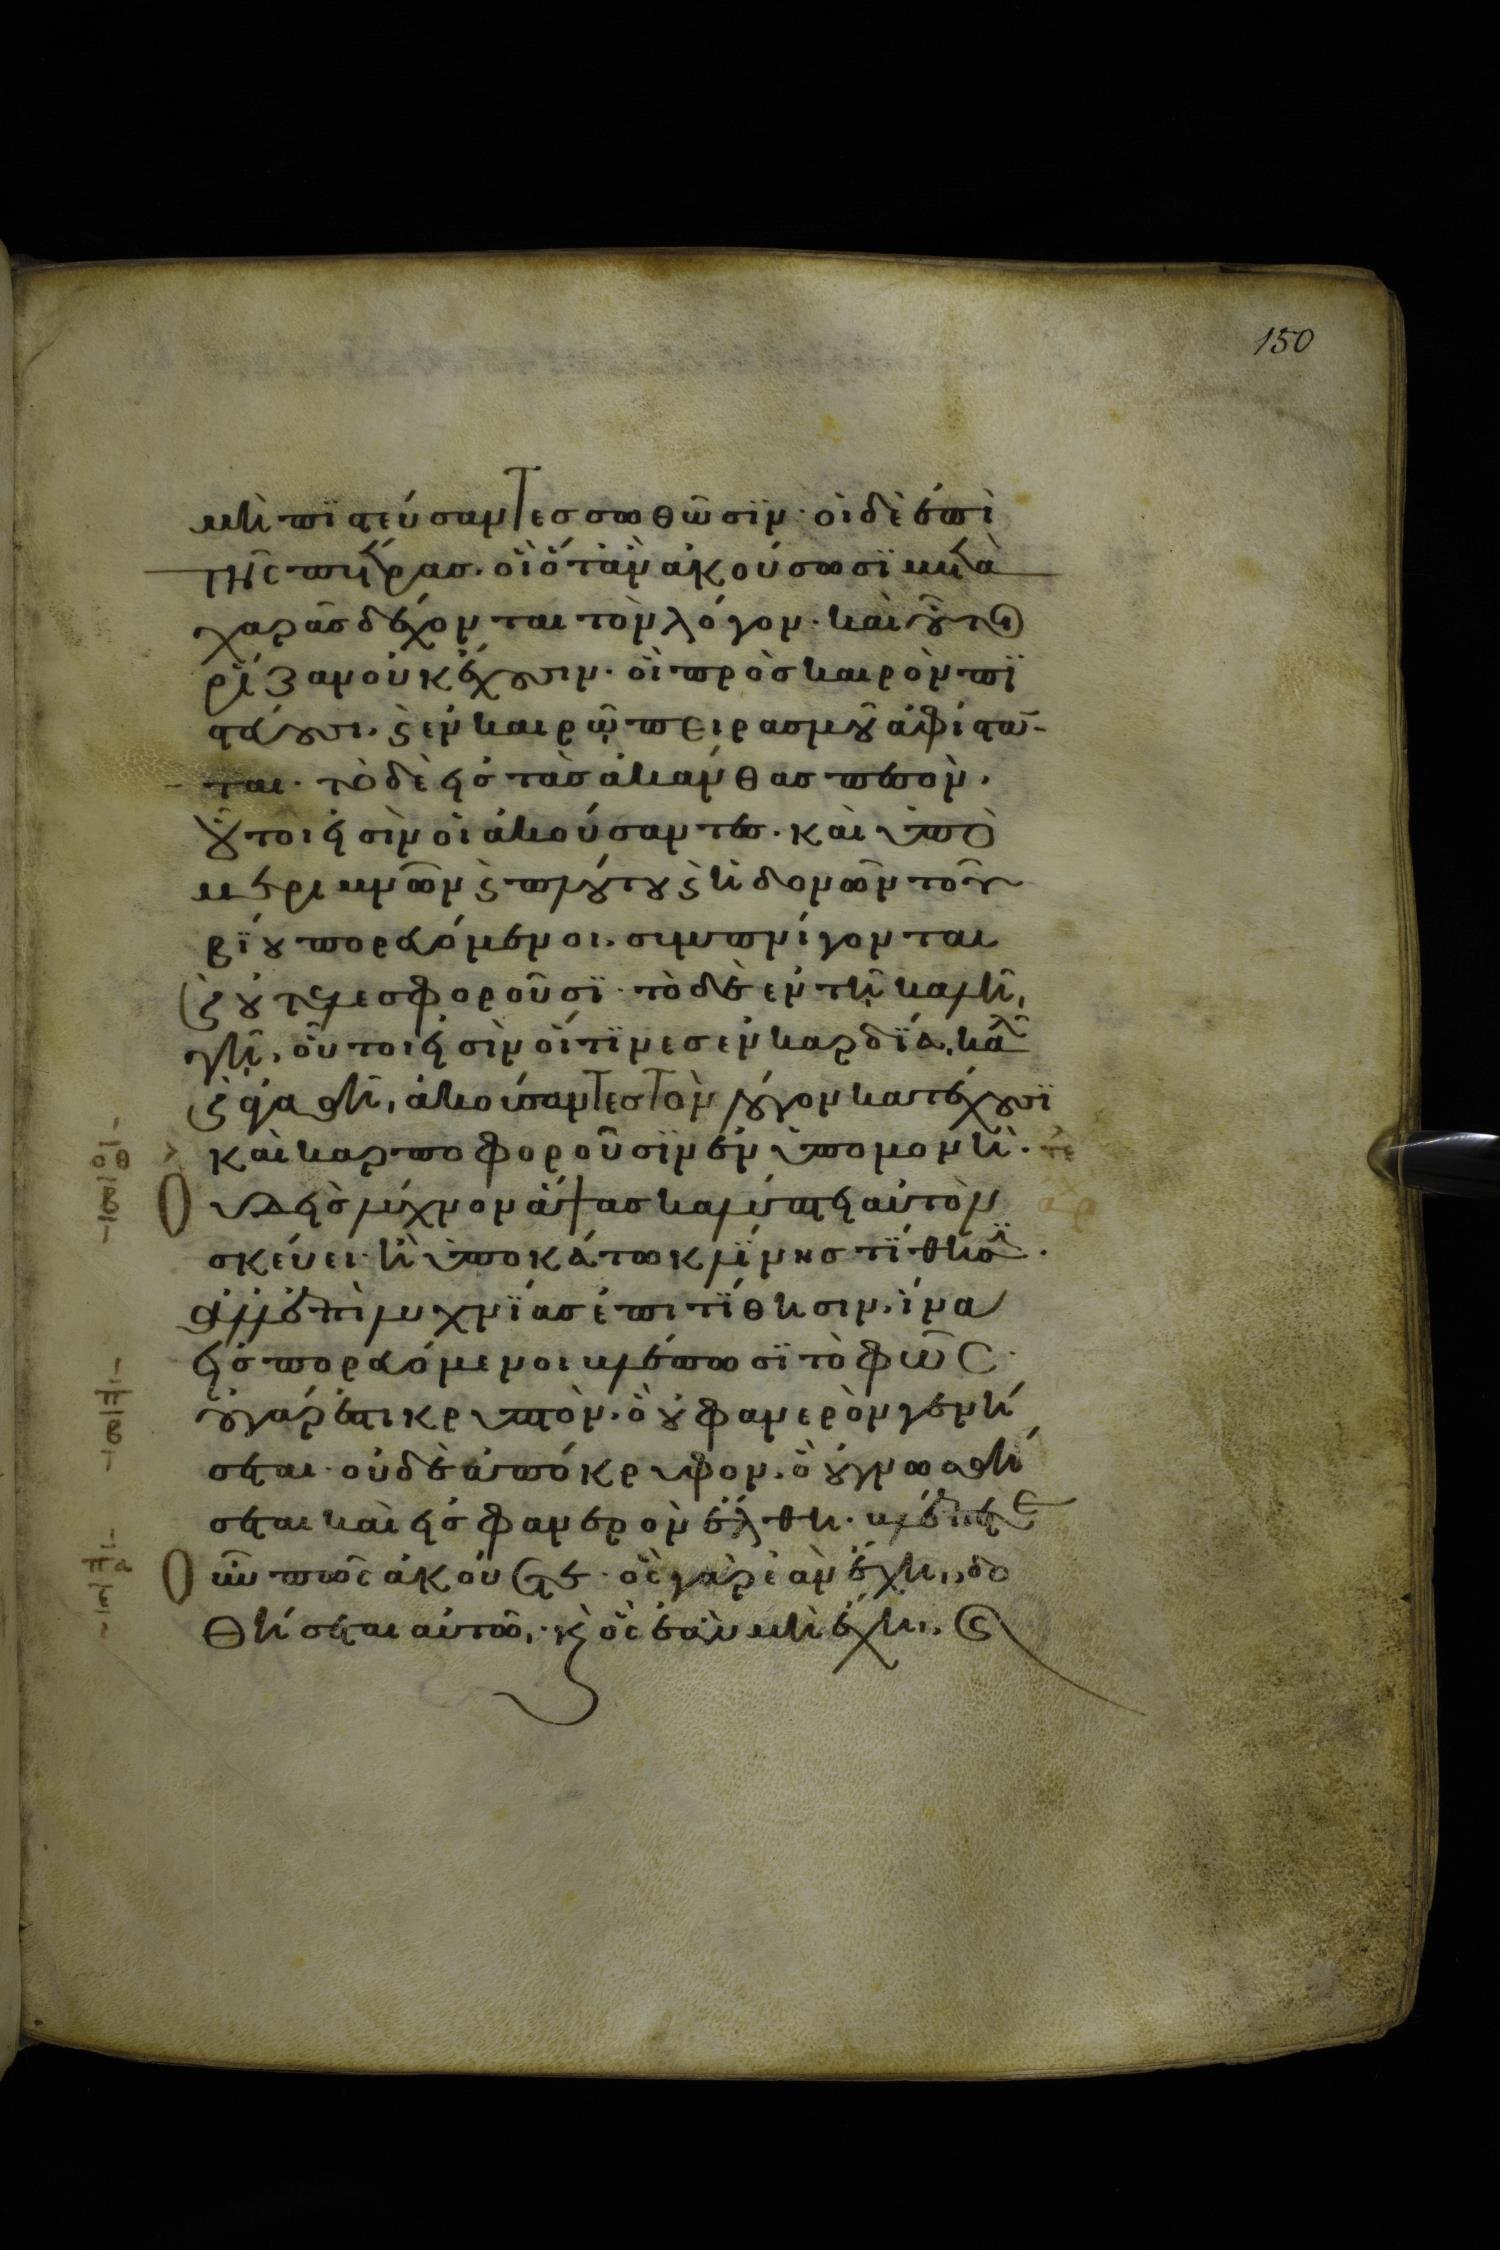 150
μὴ πϊστεύσαντες σωθῶσϊν· οἱ δὲ ἐπὶ
τῆς πέτρας· οἳ ὅταν ἀκούσωσϊ μετὰ
χαρᾶς δέχονται τὸν λόγον· καὶ οὗτοι
ῥίζαν οὐκ ἔχουσιν· οἳ πρὸς καιρὸν πϊ
στεύουσι· καὶ ἐν καιρῷ πειρασμοῦ ἀφίσταν
ται· τὸ δὲ εἰς τὰς ἀκάνθας πεσὸν·
οὗτοι εἰσὶν οἱ ἀκούσαντες· καὶ ὑπὸ
μεριμνῶν καὶ πλούτου καὶ ἡδονῶν τοῦ
βίου πορευόμενοι· συμπνίγονται
καὶ οὐ τελεσφοροῦσϊ· τὸ δὲ ἐν τῇ καλῇ
γῇ, οὗτοι εἰσὶν οἵτϊνες ἐν καρδίᾳ καλῇ
καὶ ἀγαθῇ, ἀκούσαντες τὸν λόγον κατέχουσϊ
καὶ καρποφοροῦσϊν ἐν ὑπομονῇ· τε
οὐδεὶς λύχνον ἅψας καλύπτει αὐτὸν
σκεύει· ἢ ὑποκάτω κλίνης τίθησϊ·
ἀλλ' ἐπὶ λυχνίας ἐπιτίθησιν· ἵνα
εἰσπορευόμενοι βλέπωσϊ τὸ φῶς·
οὐ γάρ ἐστι κρυπτὸν· ὃ οὐ φανερὸν γενή
σεται· οὐδὲ ἀπόκρυφον· ὃ οὐ γνωσθή
σεται καὶ εἰς φανερὸν ἔλθῃ· βλέπετε
οὖν πῶς ἀκούετε· ὃς γὰρ ἐὰν ἔχῃ, δο
θήσεται αὐτῶ· κ ὃς ἐὰν μὴ ἔχῃ, καὶ